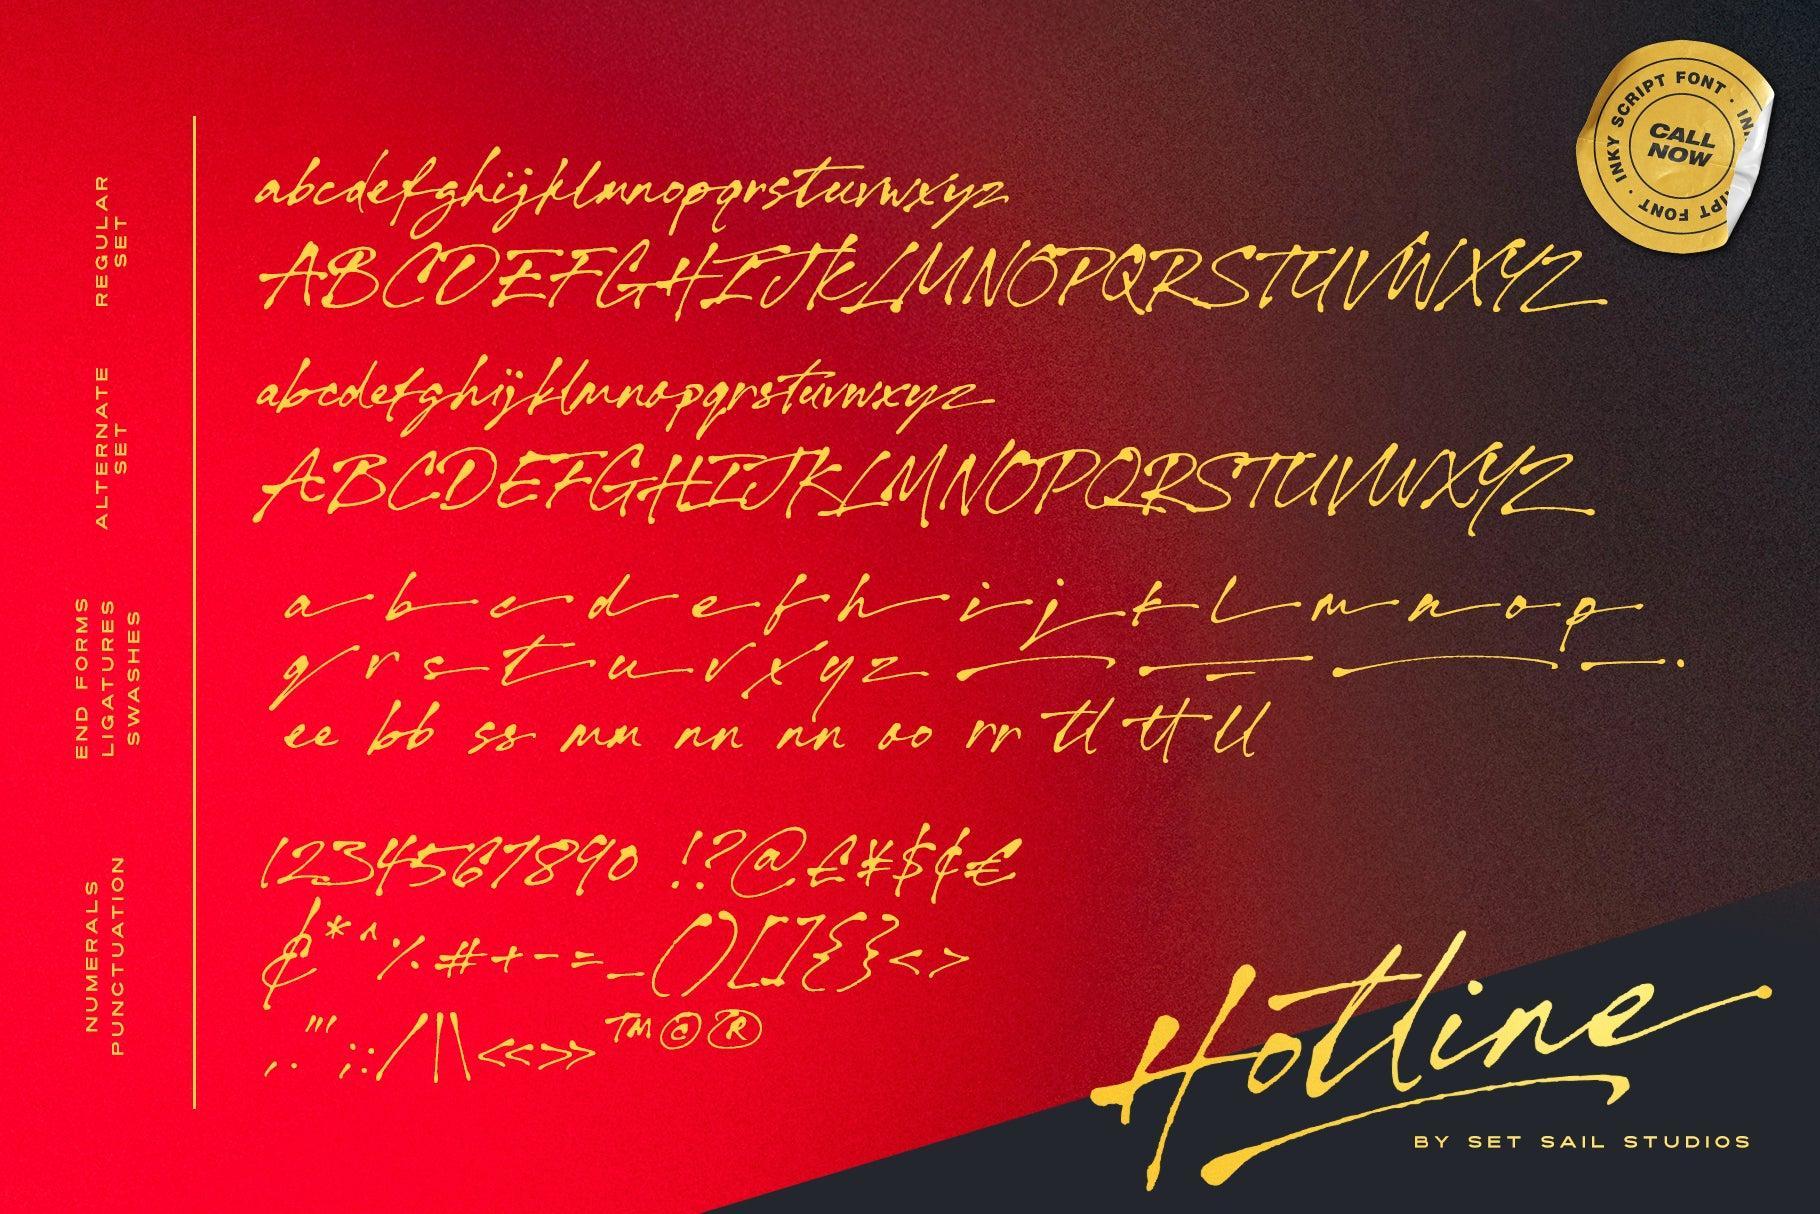 INKY SCRIPT FONT ·
CALL
NOW
REGULAR
SET
abcdefghijklmnopqrstuvwxyz
ABCDEFGHIJKLMNOPQRSTUVWXYZ
ALTERNATE
SET
abcdefghijklmnopqrstuvwxyz
ABCDEFGHIJKLMNOPQRSTUVWXYZ
END FORMS
LIGATURES
SWASHES
a b c d e f h i j k l m n o p
q r s t u v x y z
ee bb ss mm nn nn oo rr tl tt ll
NUMERALS
PUNCTUATION
1234567890 !?@£¥$¢€
*^%#+-=_()[]{}<>
,."';:/|\«»™©®
Hotline
BY SET SAIL STUDIOS